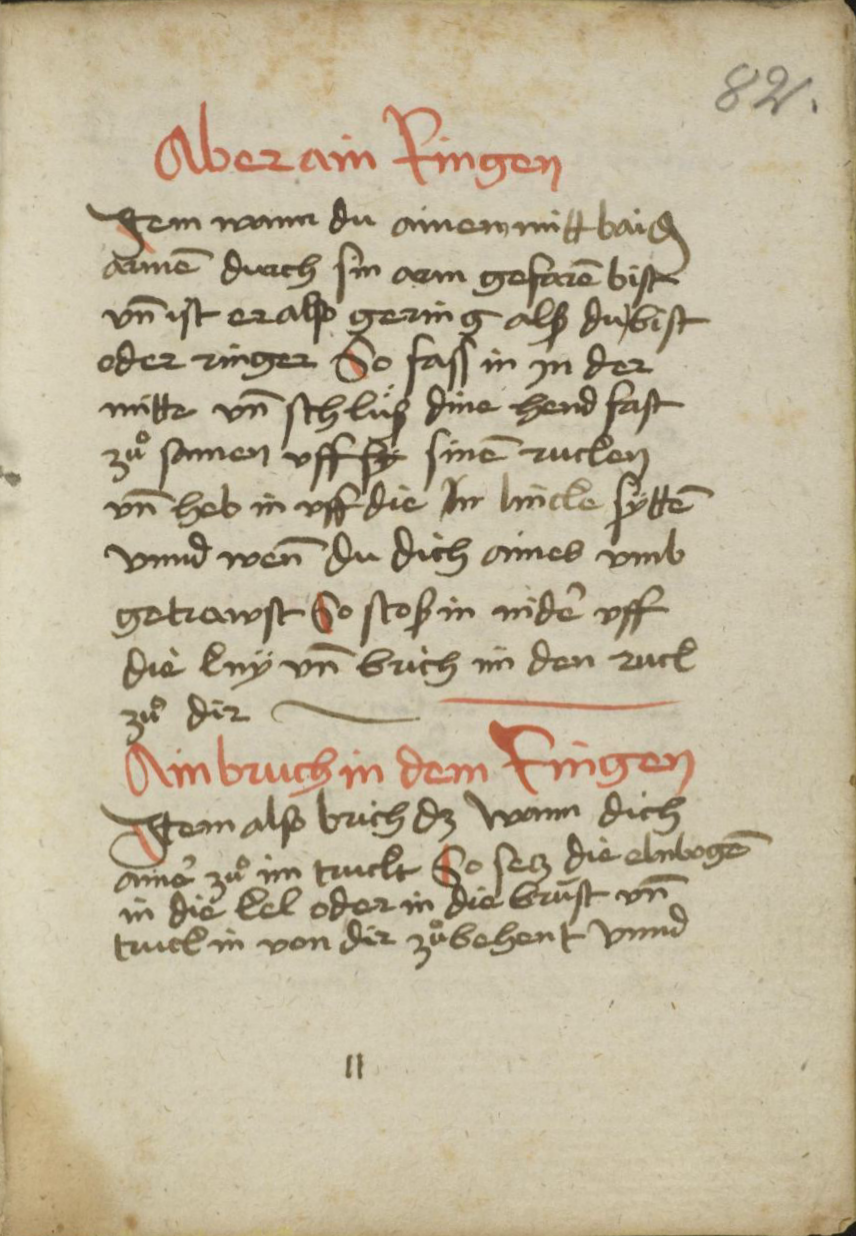 82.
Aber ain Ringen
Item wann du ainem mitt baid
armē durch sin arm gefarē bist
vn̄ ist er also gering alß du bist
oder ringer So fass in in der
mitte vn̄ schlüß dine hend fast
zuͦ samen vff sy sinē rucken
vn̄ heb in vff die lin lincke sÿttē
vnnd wen̄ du dich aines vmb
getrawst So stoß in nider vff
die knÿ vn̄ brich im den ruck
zuͦ dir
Ain bruch in dem Ringen
Item also brich dz Wann dich
ainer zuͦ im truckt So setz die elnbogē
in die kel oder in die brust vn̄
truck in von dir zuͦ behent Vnnd
II